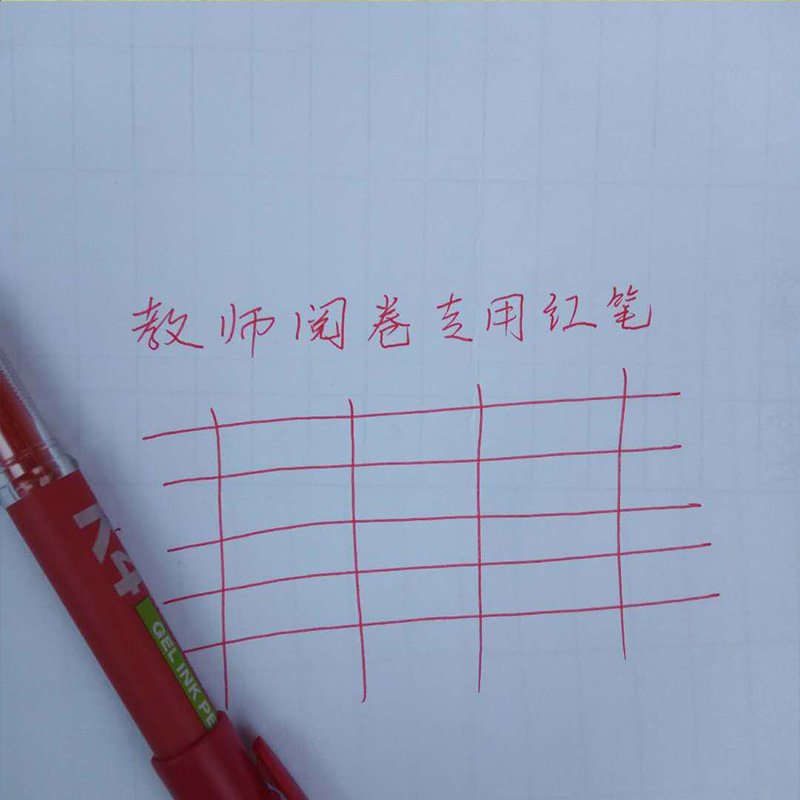 教师阅卷专用红笔
GEL INK PE